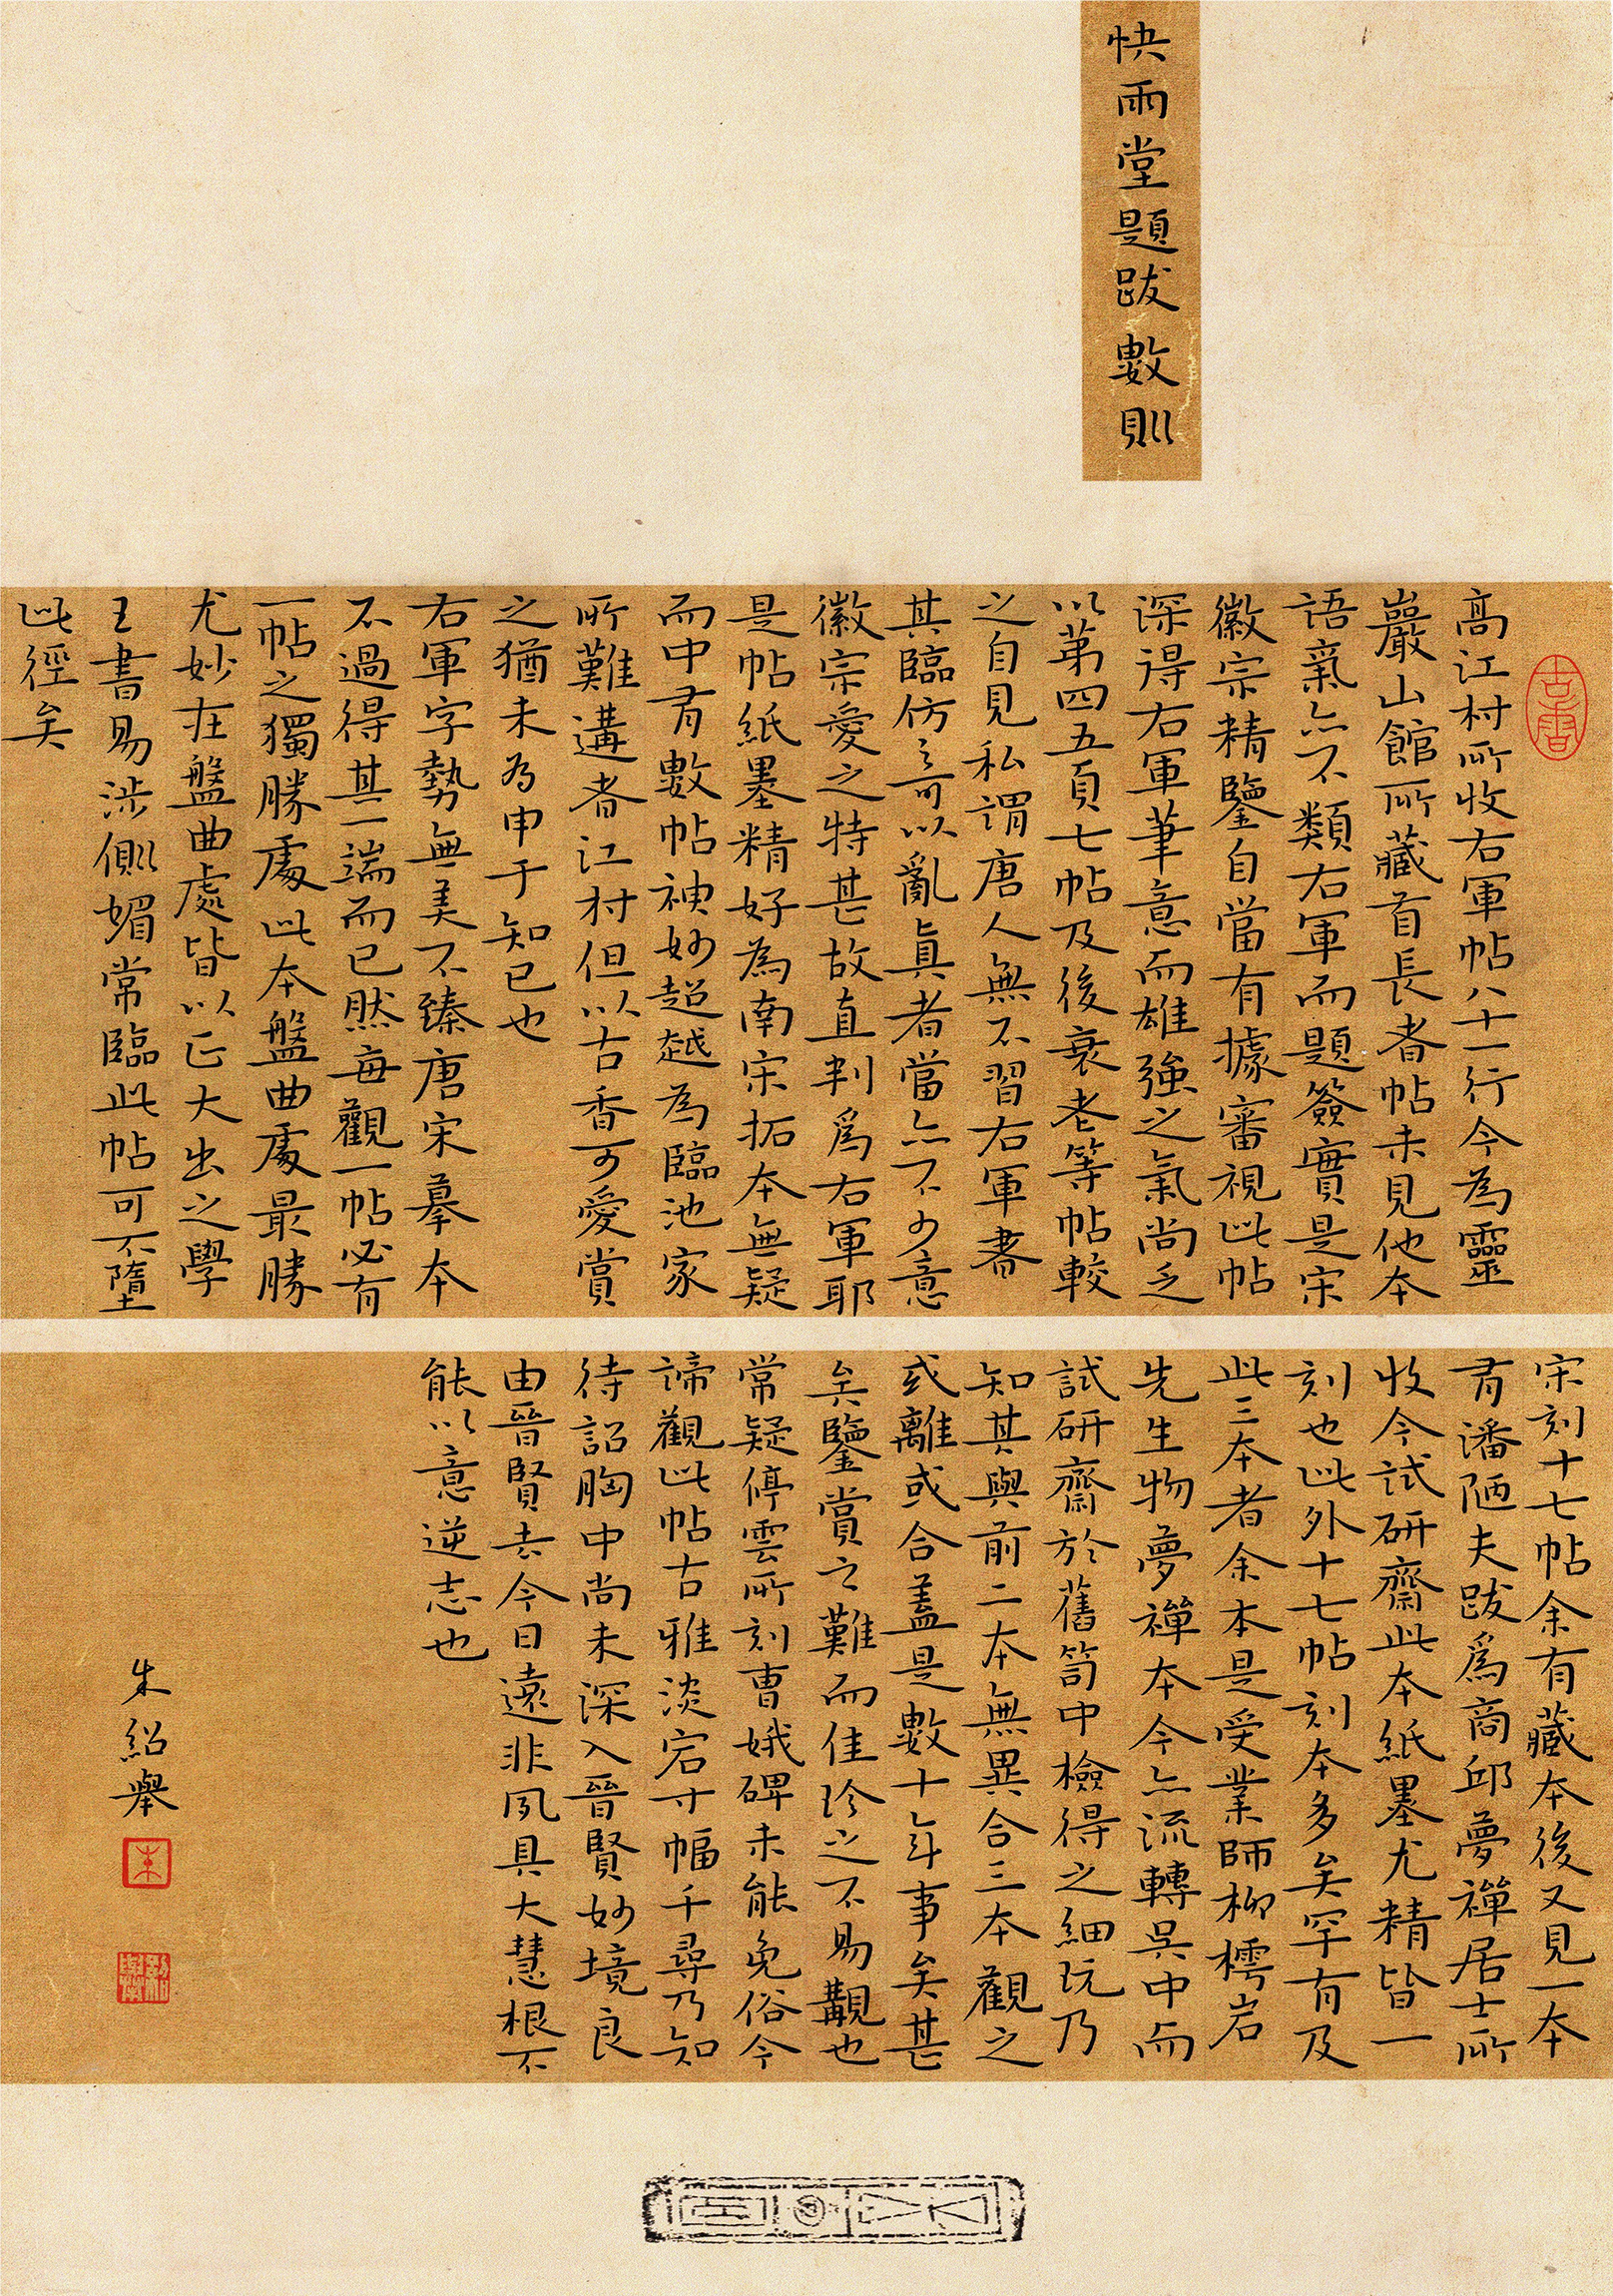 快雨堂題跋數則
高江村所收右軍帖八十一行今為靈
巖山館所藏首長者帖未見他本
語氣亦不類右軍而題簽實是宋
徽宗精鑒自當有據審視此帖
深得右軍筆意而雄強之氣尚乏
以第四五頁七帖及後衰老等帖較
之自見私謂唐人無不習右軍書
其臨仿之可以亂真者當亦不少意
徽宗愛之特甚故直判為右軍耶
是帖紙墨精好為南宋拓本無疑
而中有數帖神妙超越為臨池家
所難遘者江村但以古香可愛賞
之猶未為申于知已也
右軍字勢無美不臻唐宋摹本
不過得其一端而已然每觀一帖必有
一帖之獨勝處此本盤曲處最勝
尤妙在盤曲處皆以正大出之學
王書易涉側媚常臨此帖可不墮
此徑矣
宋刻十七帖余有藏本後又見一本
有潘陋夫跋為商邱夢禪居士所
收今試研齋此本紙墨尤精皆一
刻也此外十七帖刻本多矣罕有及
此三本者余本是受業師柳樗岩
先生物夢禪本今亦流轉吳中而
試研齋於舊笥中檢得之細玩乃
知其與前二本無異合三本觀之
或離或合蓋是數十年事矣甚
矣鑒賞之難而佳珍之不易覯也
常疑停雲所刻曹娥碑未能免俗今
諦觀此帖古雅淡宕寸幅千尋乃知
待詔胸中尚未深入晉賢妙境良
由晉賢去今日遠非夙具大慧根不
能以意逆志也
朱紹舉
朱